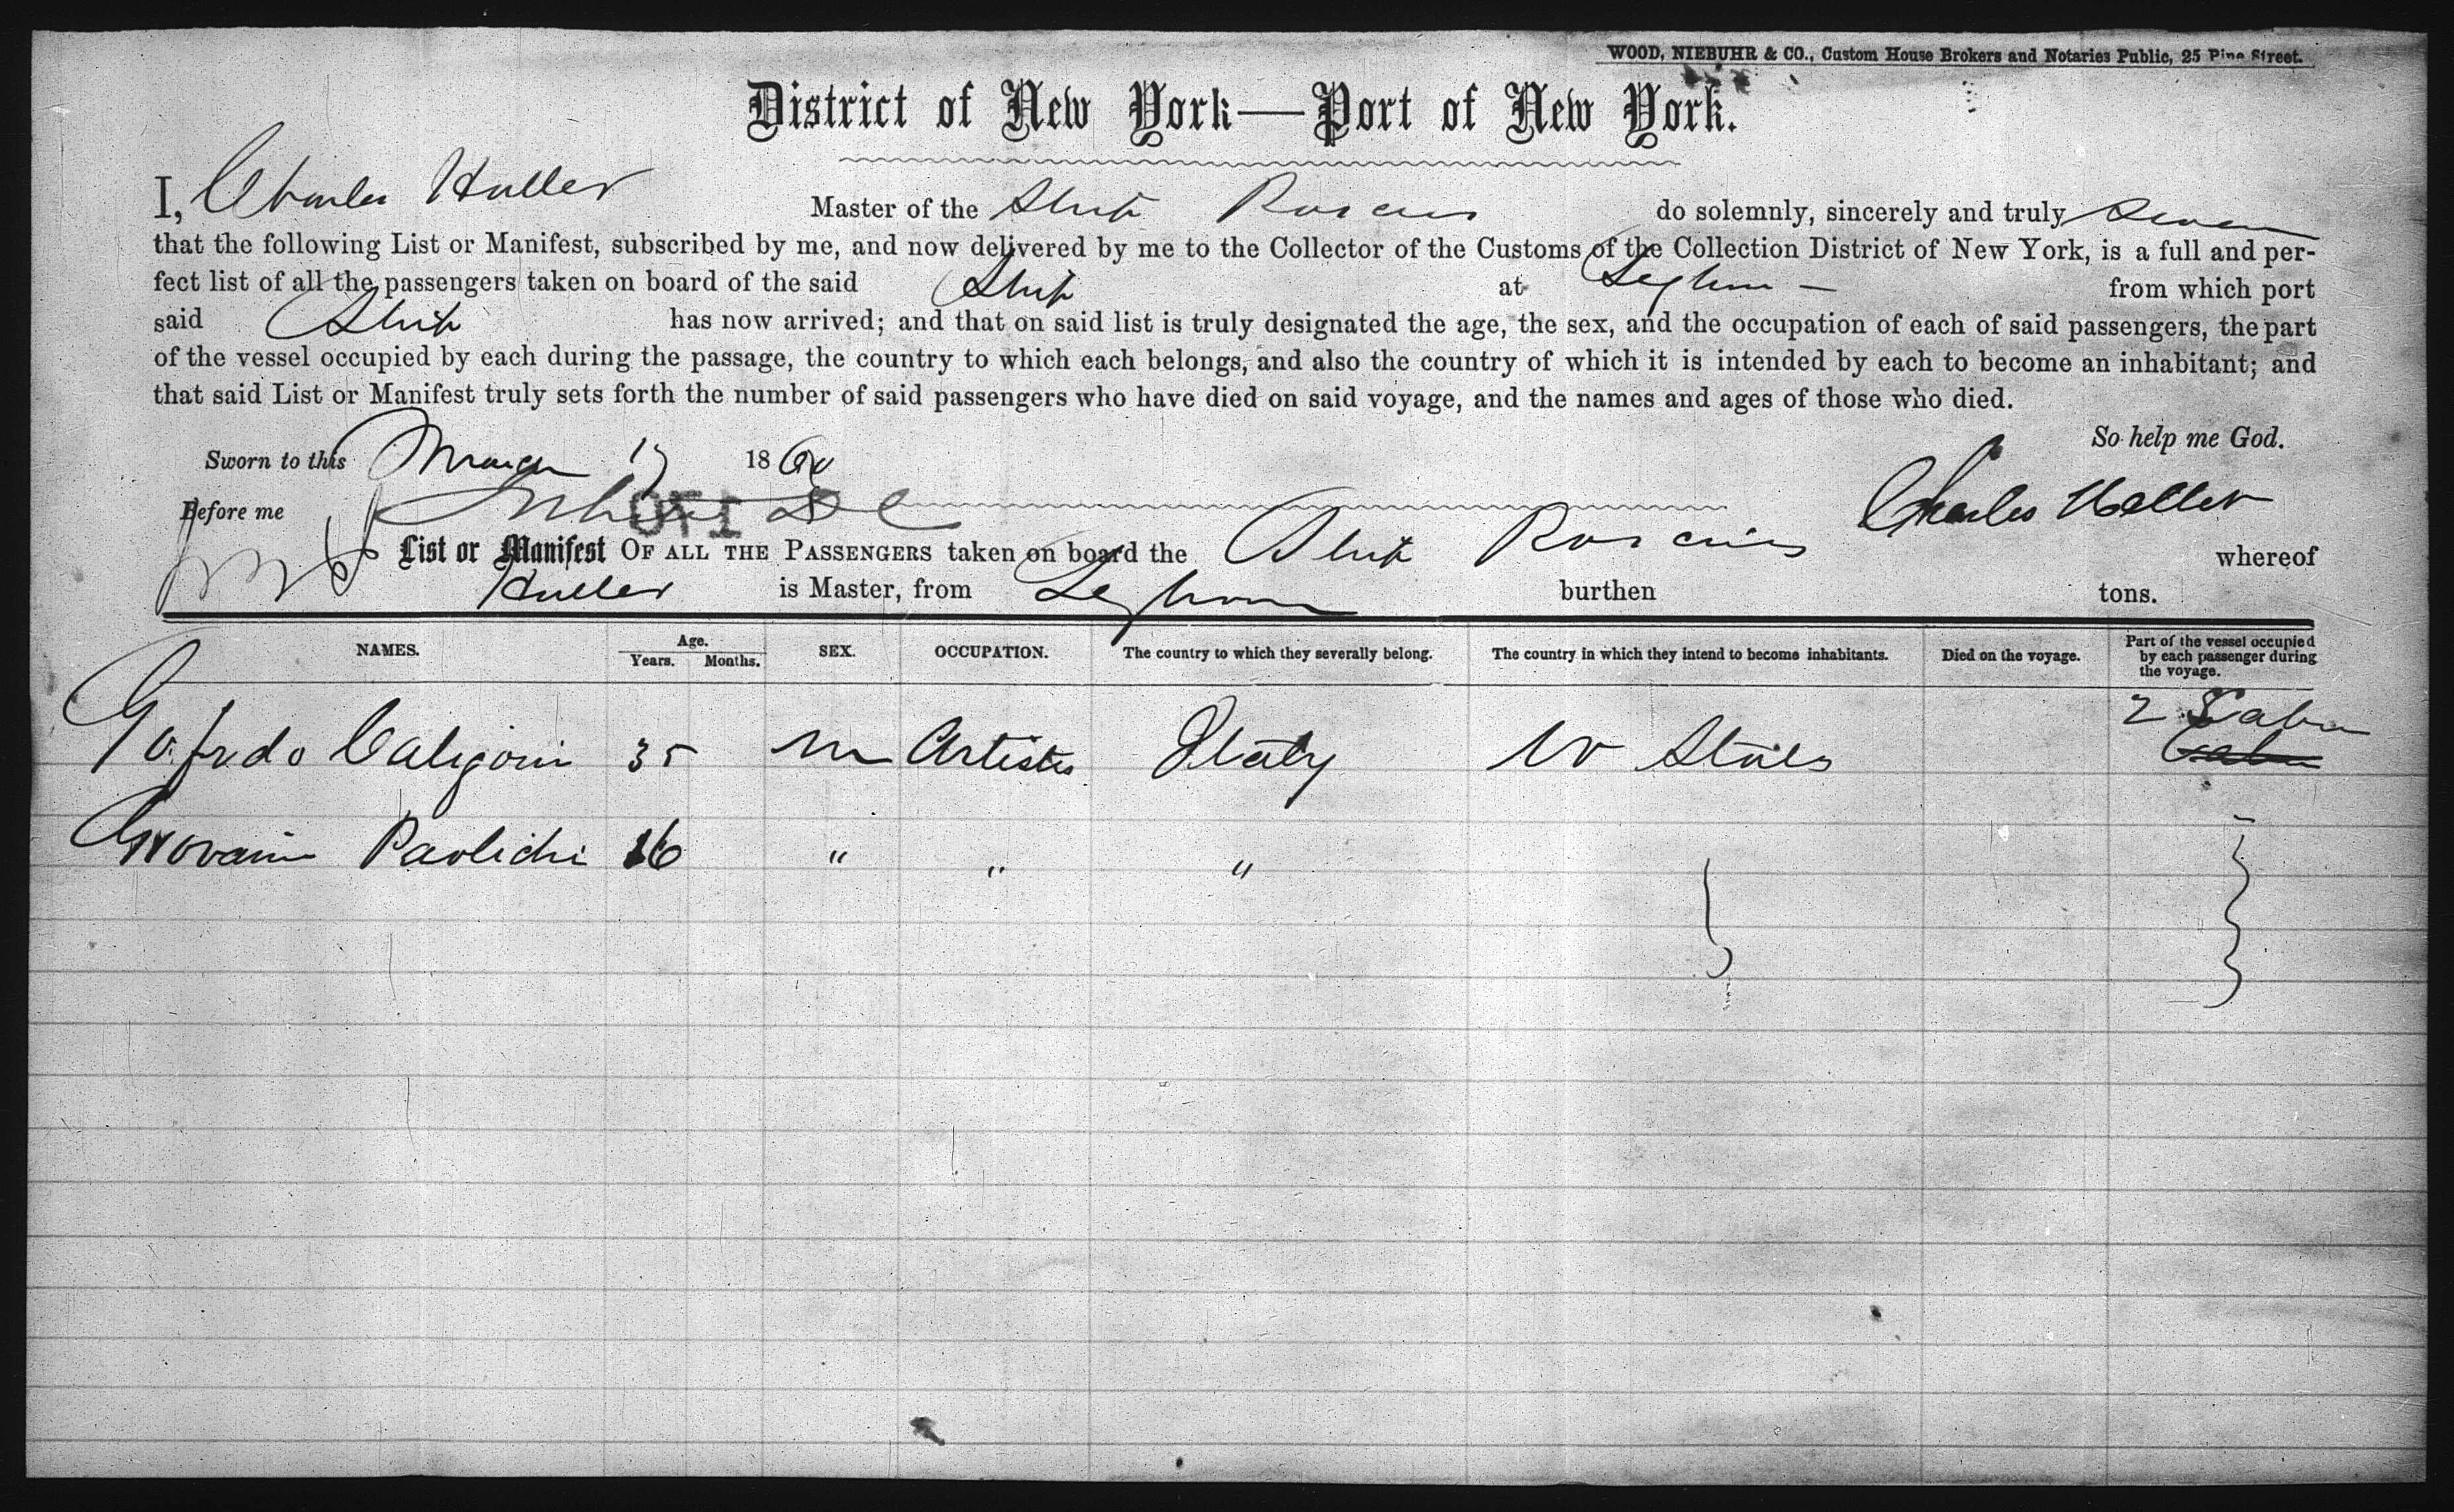 WOOD, NIEBUHR & CO., Custom House Brokers and Notaries Public, 25 Pine Street.
District of New York—Port of New York.
I, Charles Huller Master of the Ship Roscius do solemnly, sincerely and truly swear
that the following List or Manifest, subscribed by me, and now delivered by me to the Collector of the Customs of the Collection District of New York, is a full and per-
fect list of all the passengers taken on board of the said Ship at Leghorn — from which port
said Ship has now arrived; and that on said list is truly designated the age, the sex, and the occupation of each of said passengers, the part
of the vessel occupied by each during the passage, the country to which each belongs, and also the country of which it is intended by each to become an inhabitant; and
that said List or Manifest truly sets forth the number of said passengers who have died on said voyage, and the names and ages of those who died.
So help me God.
Sworn to this March 17 186
Before me Charles
List or Manifest OF ALL THE PASSENGERS taken on board the Ship Roscius whereof
Huller is Master, from Leghorn burthen tons.
NAMES. Age. Years. Months. SEX. OCCUPATION. The country to which they severally belong. The country in which they intend to become inhabitants. Died on the voyage. Part of the vessel occupied by each passenger during the voyage.
Gofredo Caligoni 35 m Artists Italy U States 2 Cabin
Giovanni Paolichi 16 " " "